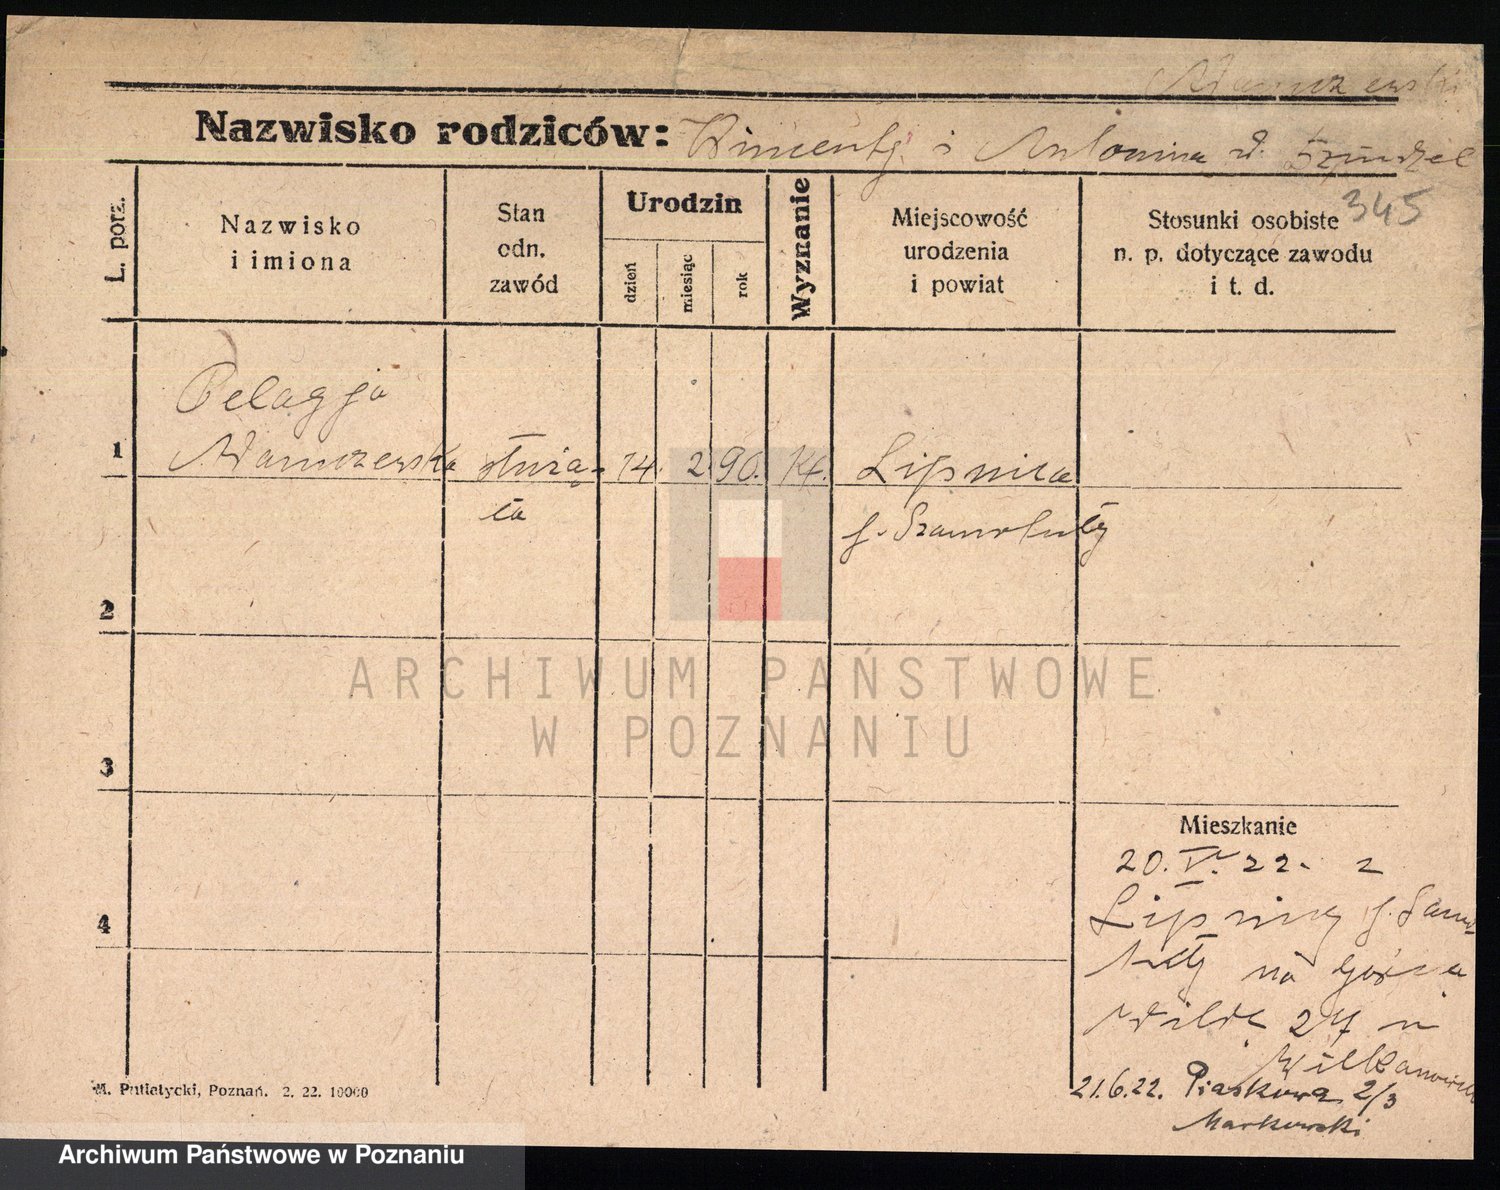 Adamczewski
Nazwisko rodziców: Wincenty i Antonina d. Szudzel
345
L. porz.
Nazwisko i imiona
Stan odn. zawód
Urodzin
dzień
miesiąc
rok
Wyznanie
Miejscowość urodzenia i powiat
Stosunki osobiste n. p. dotyczące zawodu i t. d.
Pelagja
1 Adamczewska służą- 14. 2. 90. kt. Lipnica
ca p. Szamotuły
2
3
4
ARCHIWUM PAŃSTWOWE
W POZNANIU
Mieszkanie
20. V. 22. z
Lipnicy p. Szamo-
tuły na Górna
Wilda 27 u
21.6.22. Piaskowa 2/3
Markowski
M. Putiatycki, Poznań. 2. 22. 10000
Archiwum Państwowe w Poznaniu